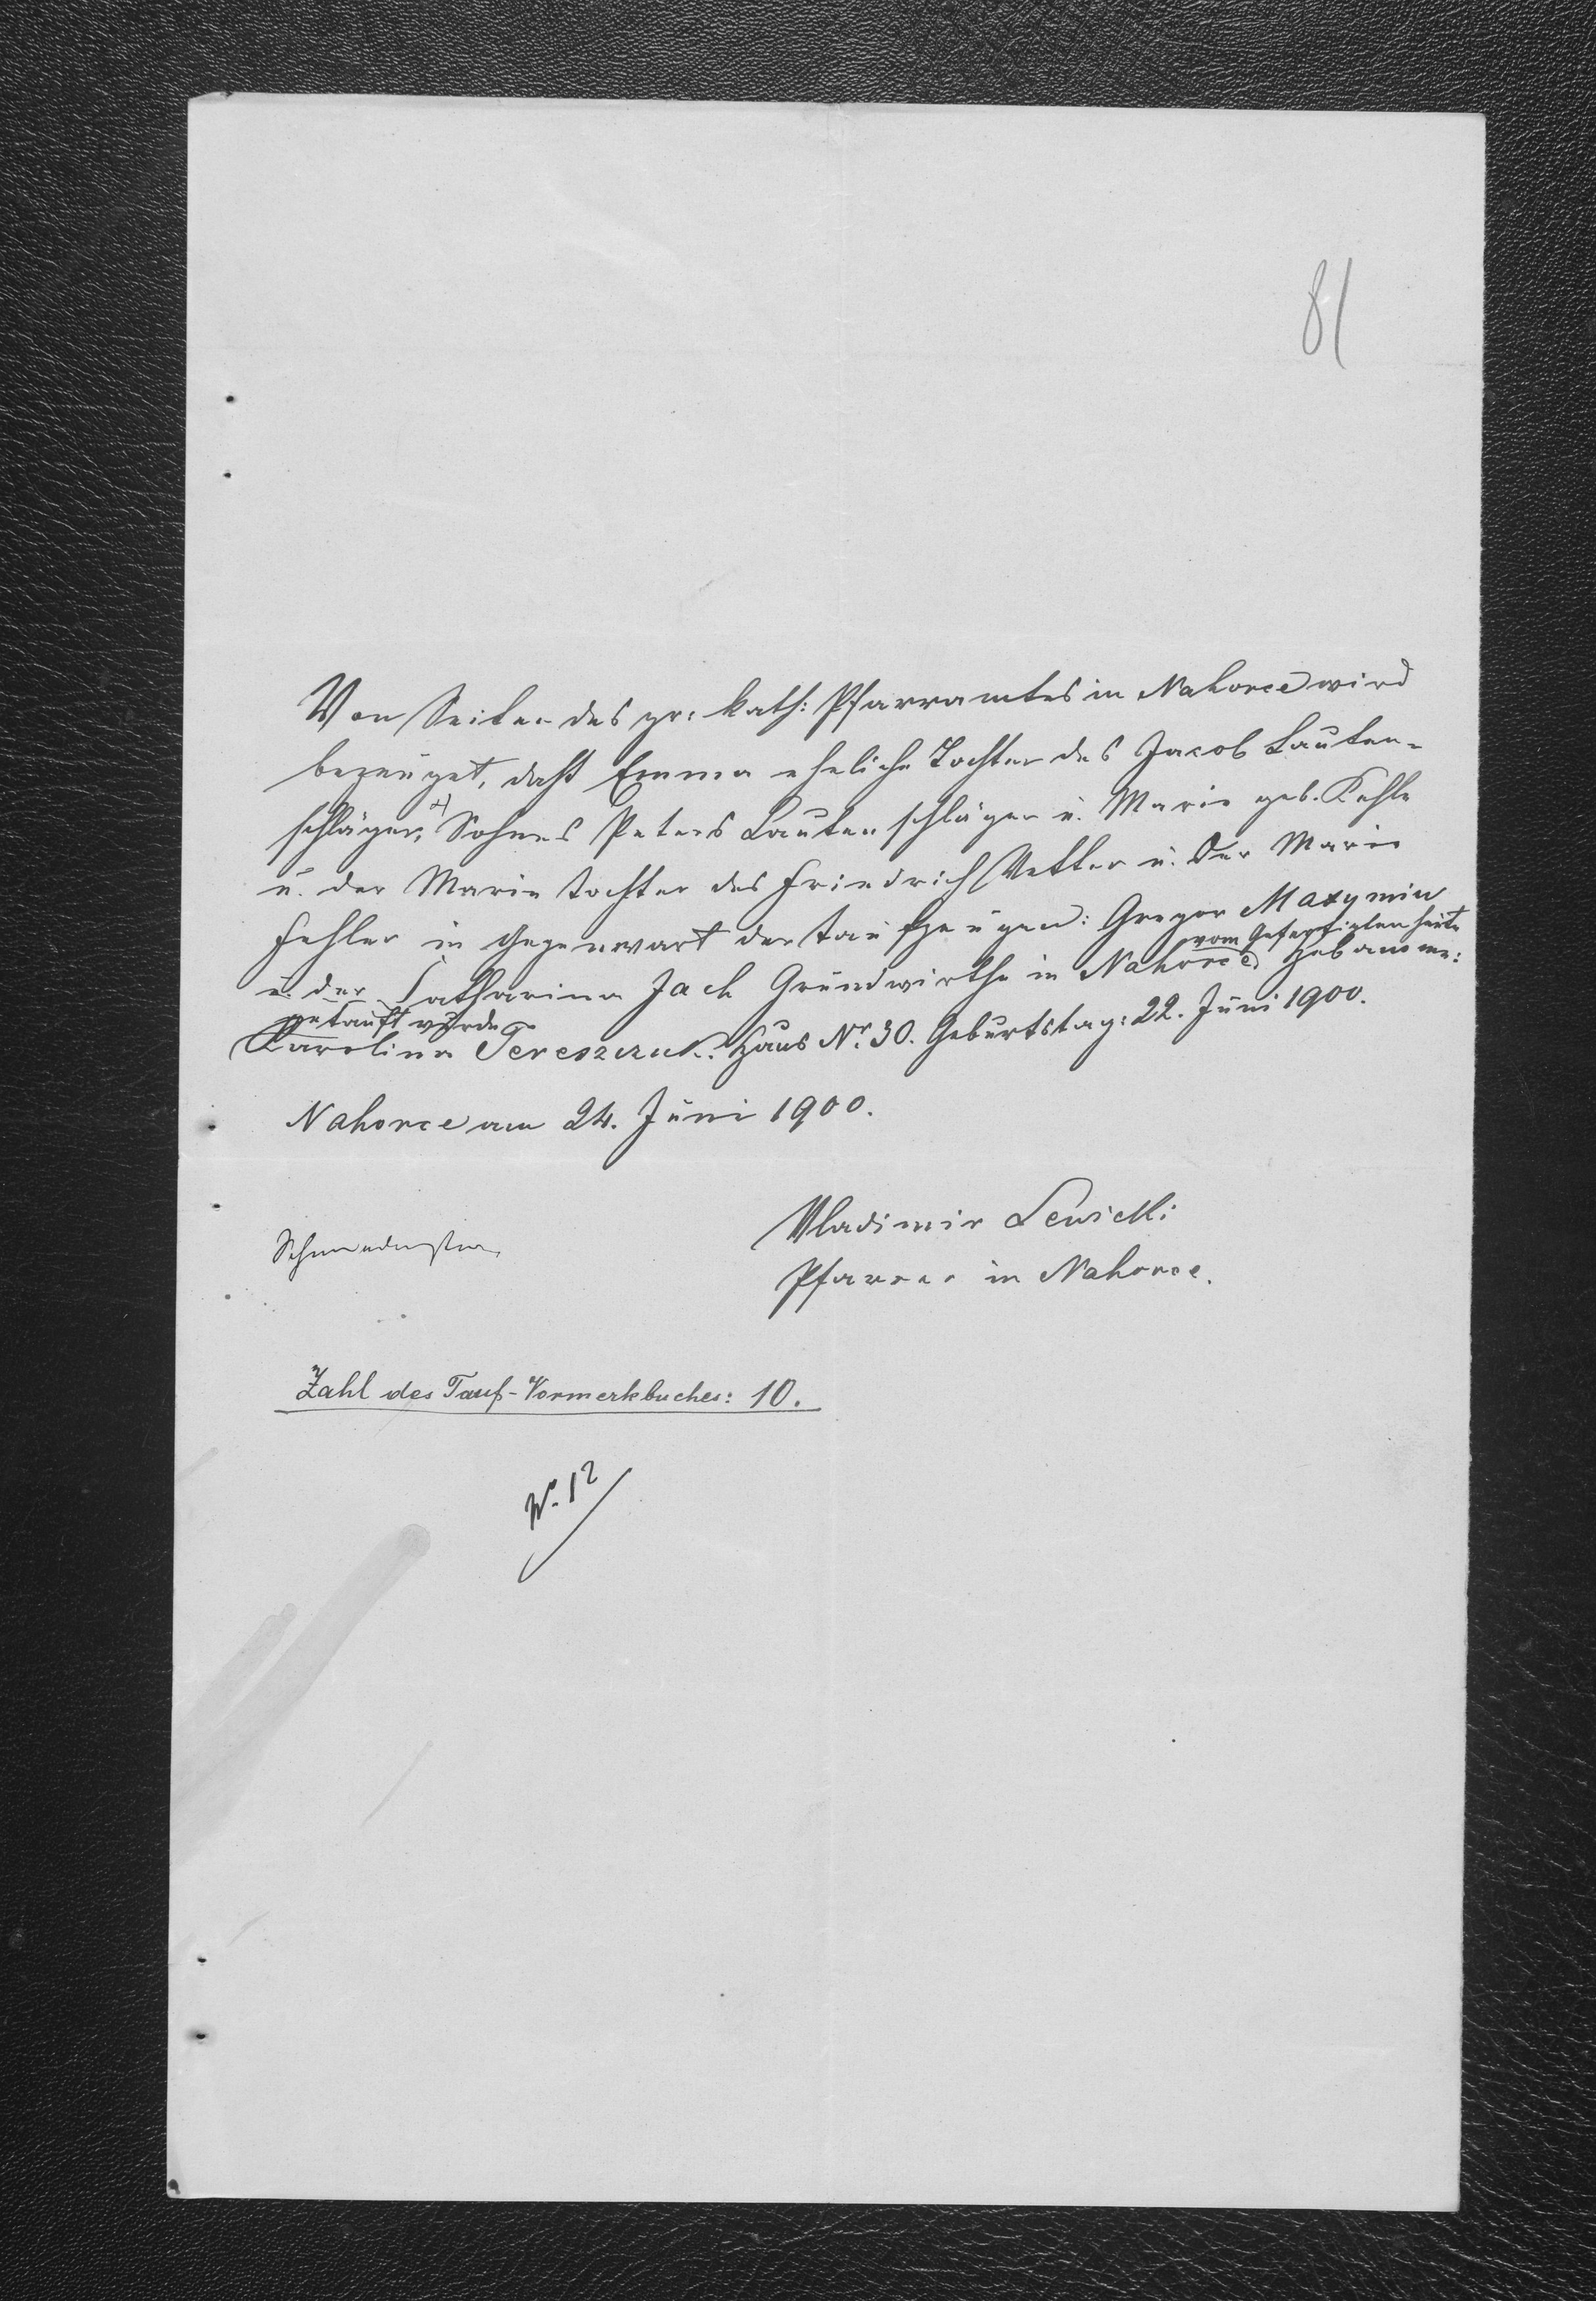 81
Von Seiten des gr: kath: Pfarramtes in Nahorce wird
bezeuget, daß Emma eheliche Tochter des Jacob Lauten-
schläger, Sohnes Peters Lautenschläger u. Marie geb. Kehle
u. der Marie Tochter des Friedrich Vetter u. der Marie
Fehler in Gegenwart der Taufzeugen: Gregor Maxymiw
vom Gefertigten heute
u. der Catharina Jach Grundwirthe in Nahorce, Hebamme:
getauft wurde
Karolina Tereszczuk. Haus Nr. 30. Geburtstag: 22. Juni 1900.
Nahorce am 24. Juni 1900.
Vladimir Lewicki
Pfarrer in Nahorce.
Zahl des Tauf-Vormerkbuches: 10.
N. 12